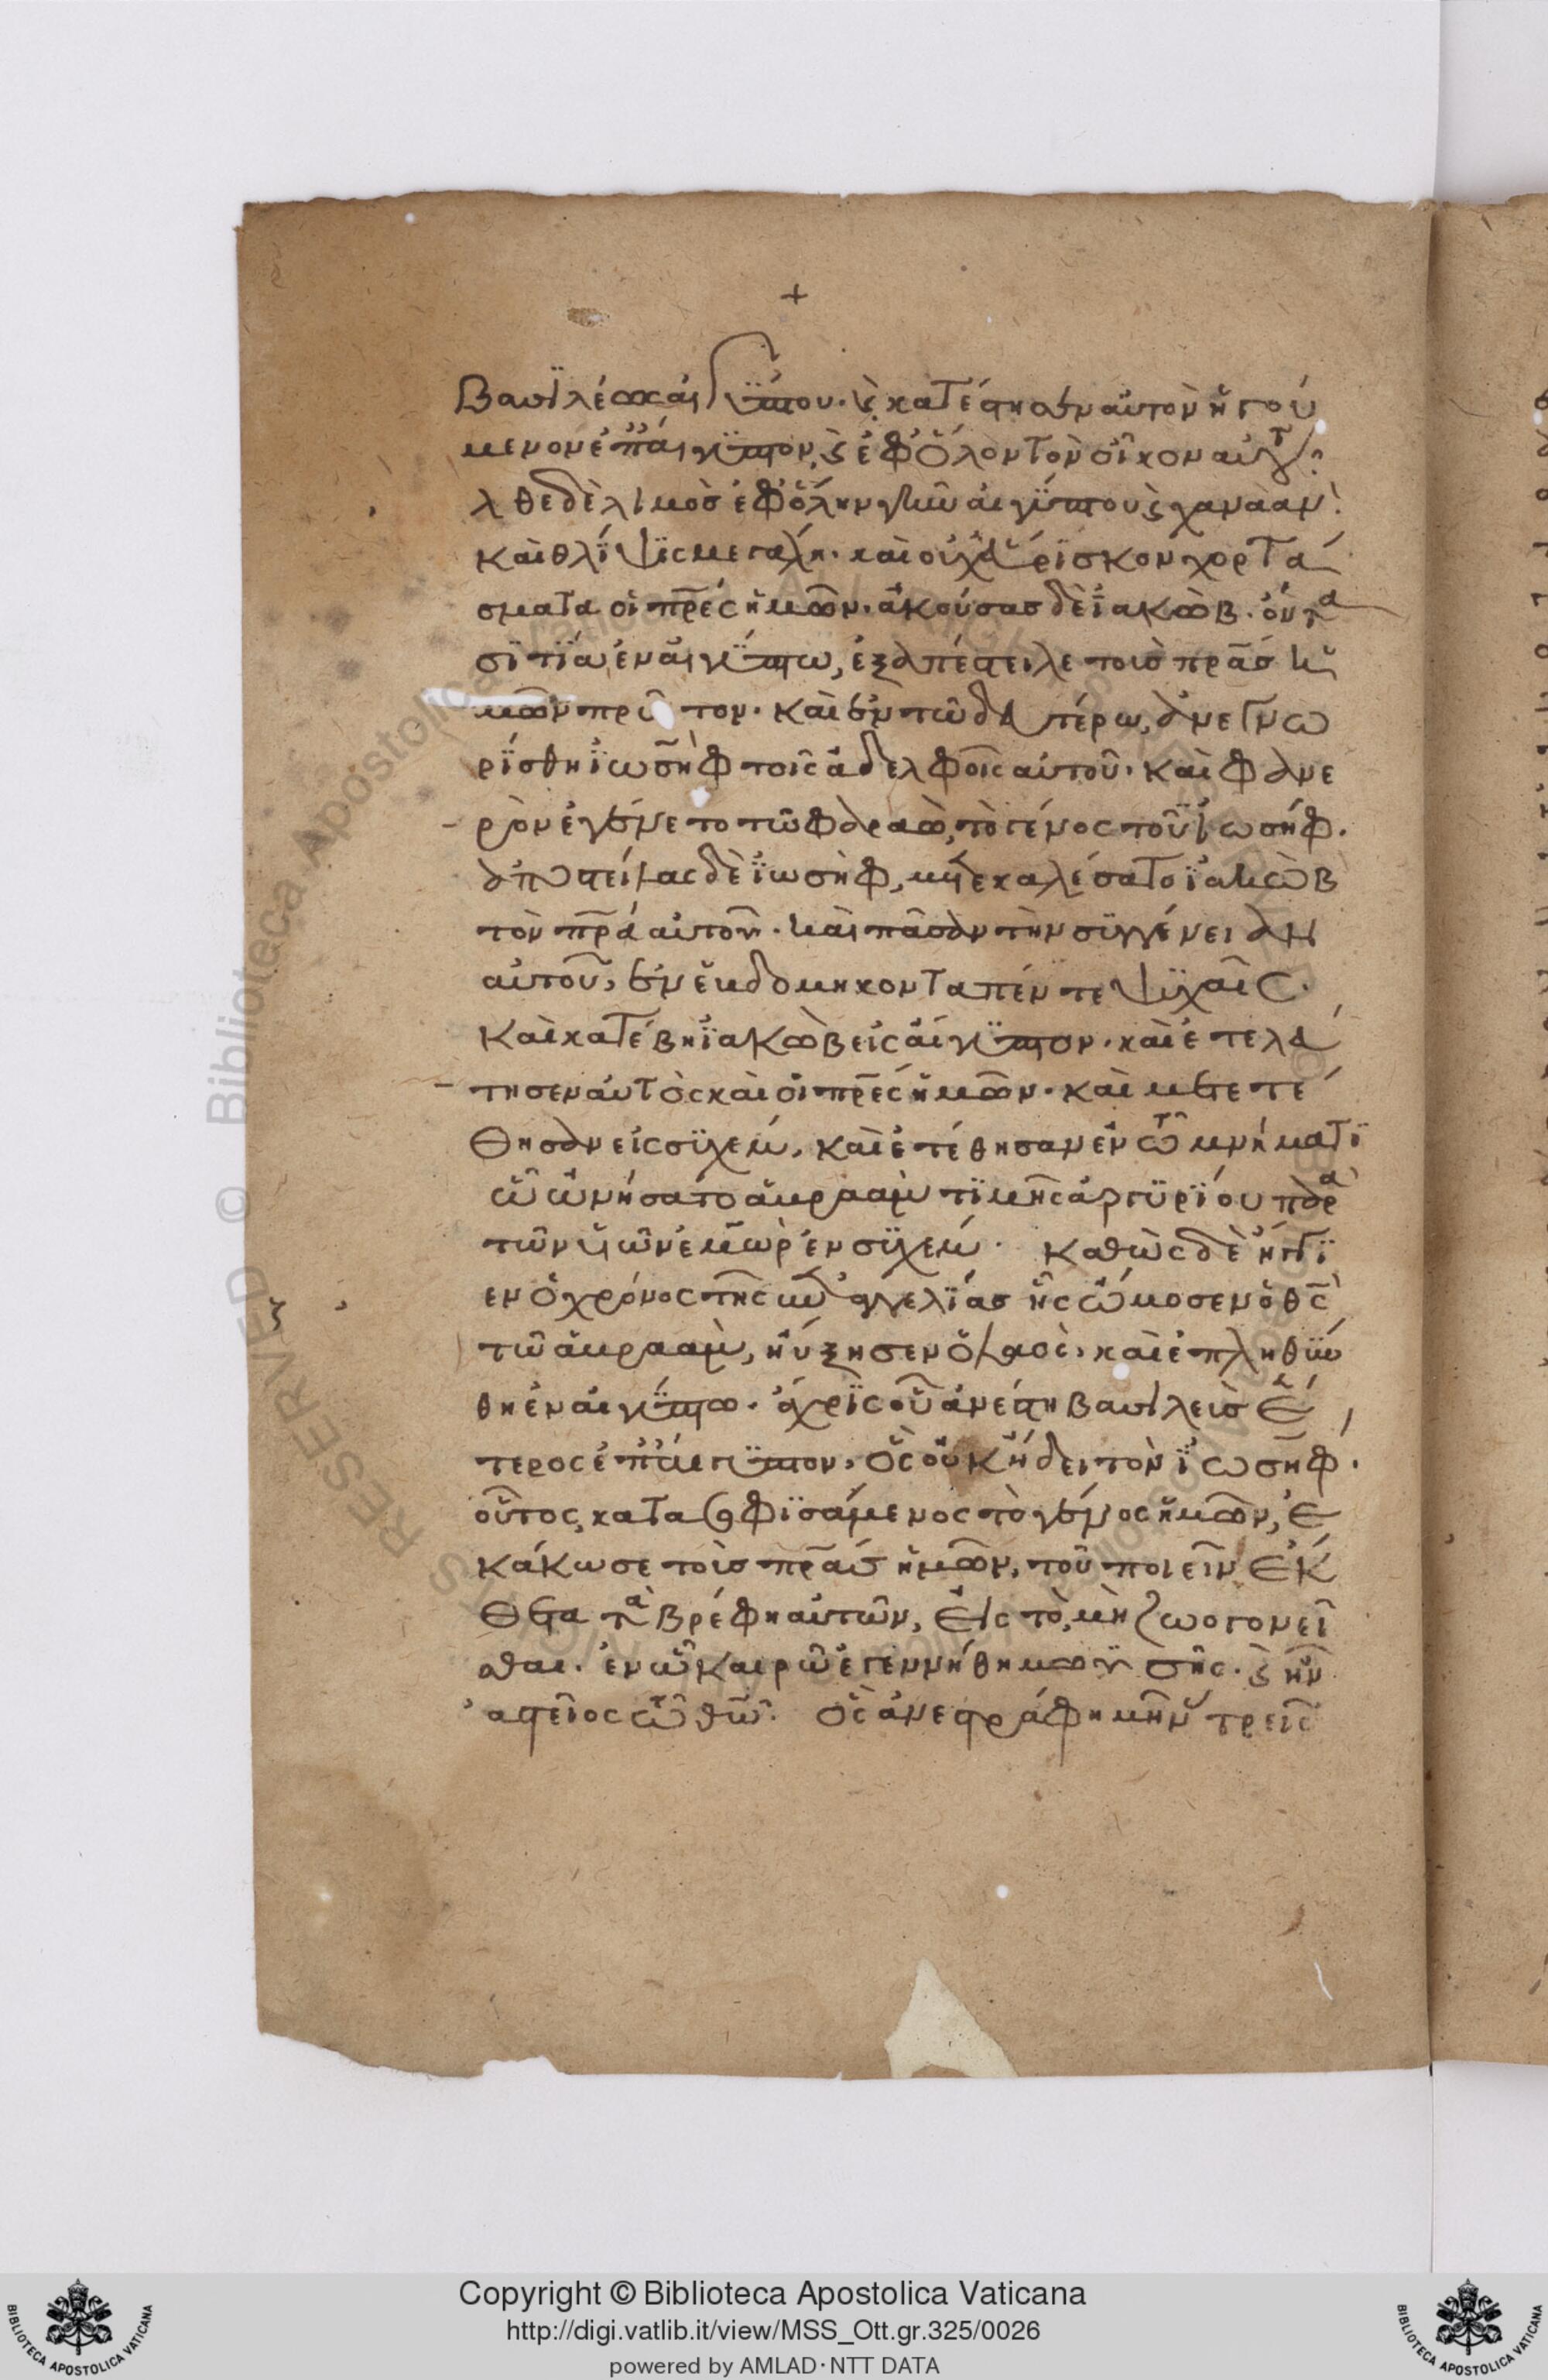 +
βασϊλέωσ αἰγύπτου· ϗ κατέστησεν αὐτὸν ἡγού
μενον ἐπ' αἴγυπτον, ϗ ἐφ' ὅλον τὸν οἶκον αὐτοῦ· ἦ
λθε δὲ λιμὸσ ἐφ' ὅλην γῆν αἰγύπτου ϗ χαναάν·
καὶ θλίψϊς μεγάλη· καὶ οὐχ εὕρϊσκον χορτά
σματα οἱ πρε̅ς ἡμῶν· ἀκούσασ δὲ ἰακὼβ· ὄντα
σϊτία ἐν αἰγύπτω, ἐξαπέστειλε τοὺσ πρα̅σ ἡ
μῶν πρῶτον· καὶ ἐν τῶ δευτέρω, ἀνεγνω
ρίσθη ϊωσὴφ τοῖς ἀδελφοῖς αὐτοῦ· καὶ φανε
ρὸν ἐγένετο τῶ φαραὼ, τὸ γένος τοῦ ϊωσήφ·
ἀποστείλας δὲ ϊωσὴφ, μετεκαλέσατο ϊακὼβ
τὸν πρα̅ αὐτοῦ· καὶ πᾶσαν τὴν συγγένειαν
αὐτοῦ, ἐν ἑβδομήκοντα πέντε ψϋχαῖς·
καὶ κατέβη ϊακὼβ εἰς αἴγυπτον· καὶ ἐτελεύ
τησεν αὐτὸς καὶ οἱ πρε̅ς ἡμῶν· καὶ μετετέ
θησαν εἰς συχέμ, καὶ ἐτέθησαν ἐν τῶ μνήματϊ
ὧ ὠνήσατο ἀβραὰμ τϊμῆς ἀργϋρίου παρὰ
τῶν υἱῶν ἐμμὼρ ἐν συχέμ· καθὼς δὲ ἤγγϊ
εν ὁ χρόνος τῆς ἐπαγγελίασ ἧς ὤμοσεν ὁ θς̅
τῶ ἀβραὰμ, ηὔξησεν ὁ λαὸς· καὶ ἐπληθύν
θη ἐν αἰγύπτω· ἄχρϊς οὗ ἀνέστη βασϊλεὺσ ἕ
τερος ἐπ' αἴγυπτον, ὃς οὐκ ἤδει τὸν ϊωσήφ·
οὗτος κατασοφϊσάμενος τὸ γένος ἡμῶν, ἐ
κάκωσε τοὺσ πρα̅σ ἡμῶν, τοῦ ποιεῖν ἔκ
θετα τὰ βρέφη αὐτῶν, εἰς τὸ, μὴ ζωογονεῖ
σθαι· ἐν ὧ καιρῶ ἐγεννήθη μωϋσῆς· ϗ ἦν
ἀστεῖος τῶ θω̅· ὃς ἀνεστράφη μῆν τρεῖς
Copyright © Biblioteca Apostolica Vaticana
http://digi.vatlib.it/view/MSS_Ott.gr.325/0026
powered by AMLAD·NTT DATA